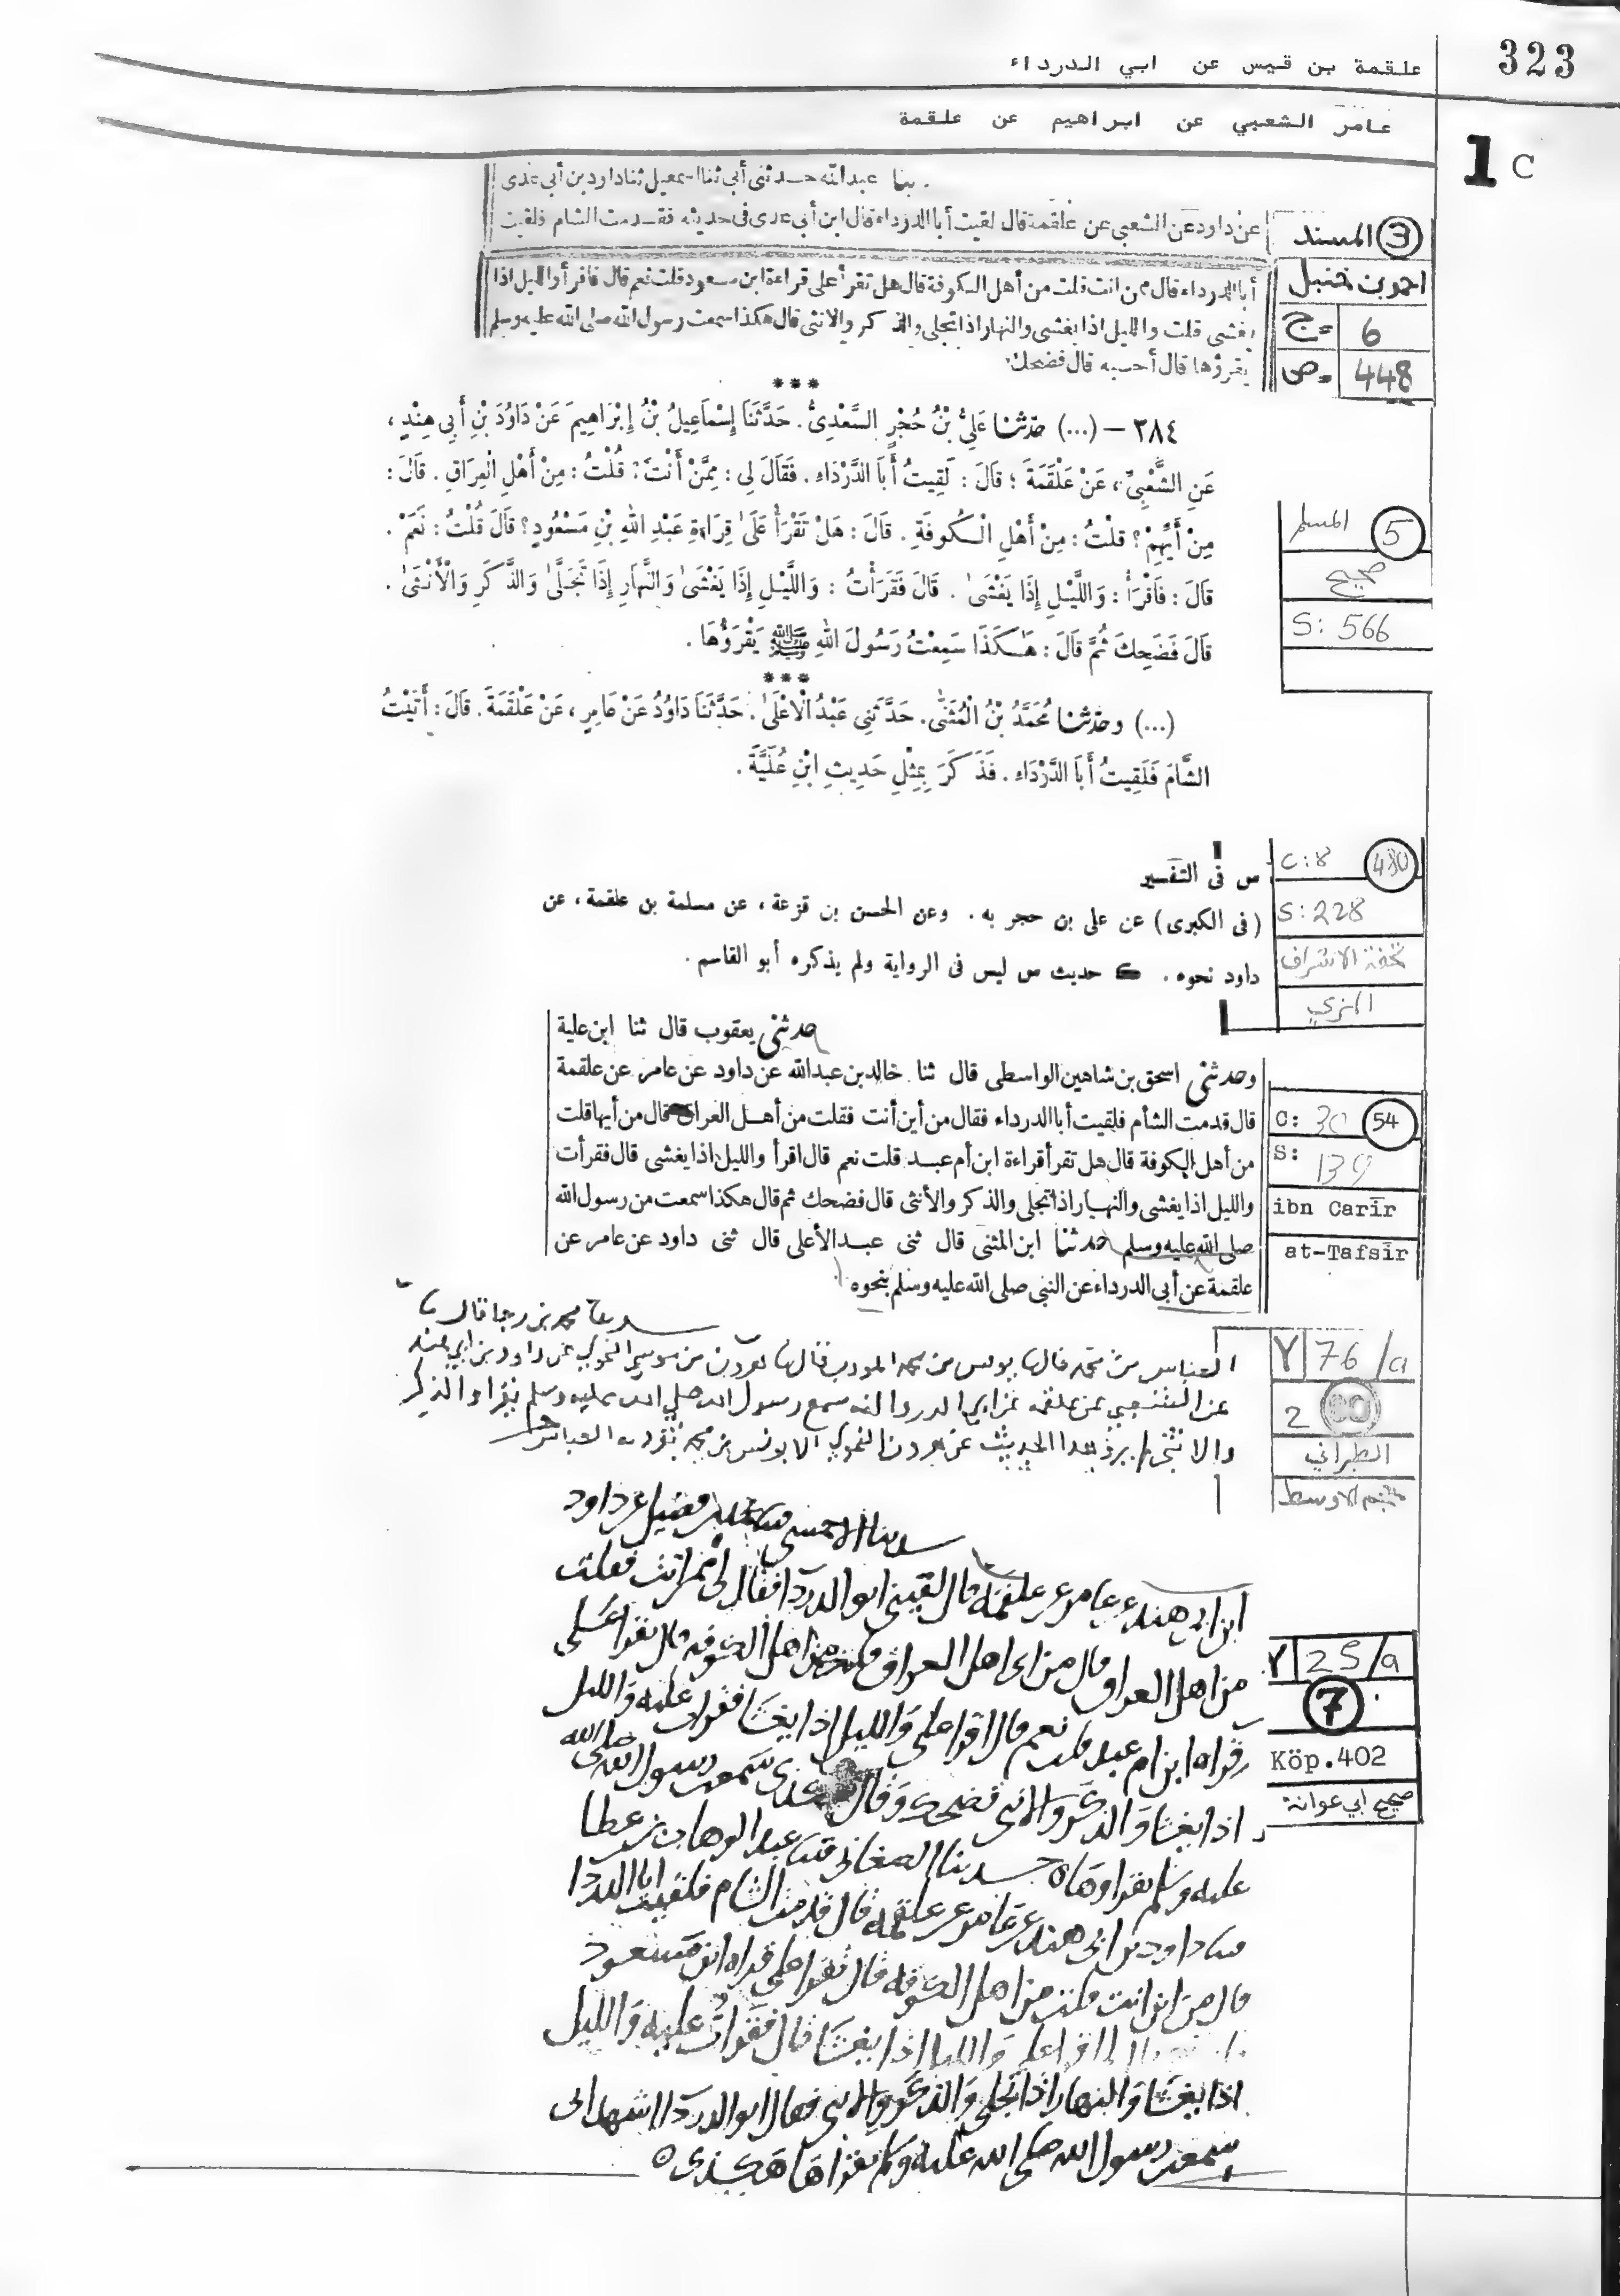 323
علقمة بن قيس عن ابي الدرداء
عامر الشعبي عن ابراهيم عن علقمة
1 C
ثنا عبدالله حدثنى أبى ثنا اسمعيل ثنا داود بن أبى عدى
عن داود عن الشعبى عن علقمة قال لقيت أبا الدرداء قال ابن أبى عدى فى حديثه فقدمت الشام فلقيت
أبا الدرداء قال ممن انت قلت من أهل الكوفة قال هل تقرأ على قراءة ابن مسعود قلت نعم قال فاقرأ والليل اذا
يغشى قلت والليل اذا يغشى والنهار اذا تجلى والذكر والانثى قال هكذا سمعت رسول الله صلى الله عليه وسلم
يقرؤها قال أحسبه قال فضحك
3 المسند
احمد بن حنبل
ج= 6
ص= 448
***
٢٨٤ – (...) حدثنا عَلِيُّ بْنُ حُجْرٍ السَّعْدِىُّ . حَدَّثَنَا إِسْمَاعِيلُ بْنُ إِبْرَاهِيمَ عَنْ دَاوُدَ بْنِ أَبِى هِنْدٍ ،
عَنِ الشَّعْبِىِّ ، عَنْ عَلْقَمَةَ ؛ قَالَ : لَقِيتُ أَبَا الدَّرْدَاءِ . فَقَالَ لِى : مِمَّنْ أَنْتَ ؟ قُلْتُ : مِنْ أَهْلِ الْعِرَاقِ . قَالَ :
مِنْ أَيِّهِمْ ؟ قُلْتُ : مِنْ أَهْلِ الْكُوفَةِ . قَالَ : هَلْ تَقْرَأُ عَلَىٰ قِرَاءَةِ عَبْدِ اللهِ بْنِ مَسْعُودٍ ؟ قَالَ قُلْتُ : نَعَمْ .
قَالَ : فَاقْرَأْ : وَاللَّيْلِ إِذَا يَغْشَىٰ . قَالَ فَقَرَأْتُ : وَاللَّيْلِ إِذَا يَغْشَىٰ وَالنَّهَارِ إِذَا تَجَلَّىٰ وَالذَّكَرِ وَالْأُنْثَىٰ .
قَالَ فَضَحِكَ ثُمَّ قَالَ : هَٰكَذَا سَمِعْتُ رَسُولَ اللهِ ﷺ يَقْرَؤُهَا .
***
(...) وحدثنا مُحَمَّدُ بْنُ الْمُثَنَّى . حَدَّثَنِى عَبْدُ الْأَعْلَىٰ . حَدَّثَنَا دَاوُدُ عَنْ عَامِرٍ ، عَنْ عَلْقَمَةَ . قَالَ : أَتَيْتُ
الشَّامَ فَلَقِيتُ أَبَا الدَّرْدَاءِ . فَذَكَرَ بِمِثْلِ حَدِيثِ ابْنِ عُلَيَّةَ .
المسلم 5
صحيح
S: 566
س فى التفسير
(فى الكبرى) عن على بن حجر به . وعن الحسن بن قزعة ، عن مسلمة بن علقمة ، عن
داود نحوه . ك حديث س ليس فى الرواية ولم يذكره أبو القاسم .
C:8
S:228
تحفة الاشراف
المزي
حدثنى يعقوب قال ثنا ابن علية
وحدثنى اسحق بن شاهين الواسطى قال ثنا خالد بن عبدالله عن داود عن عامر عن علقمة
قال قدمت الشأم فلقيت أبا الدرداء فقال من أين أنت فقلت من أهل العراق قال من أيها قلت
من أهل الكوفة قال هل تقرأ قراءة ابن أم عبد قلت نعم قال اقرأ والليل اذا يغشى قال فقرأت
والليل اذا يغشى والنهار اذا تجلى والذكر والأنثى قال فضحك ثم قال هكذا سمعت من رسول الله
صلى الله عليه وسلم حدثنا ابن المثنى قال ثنى عبدالأعلى قال ثنى داود عن عامر عن
علقمة عن أبى الدرداء عن النبى صلى الله عليه وسلم بنحوه
C: 30 54
S: 139
ibn Carīr
at-Tafsīr
محمد بن رجا قال
العباس بن محمد قال يونس بن محمد المودب قال هرون بن موسى النحوي عن داود بن ابي هند
عن الشعبي عن علقمه عن ابي الدردا انه سمع رسول الله صلى الله عليه وسلم يقرا والذكر
والانثى لم يرو هذا الحديث عن هرون النحوي الا يونس بن محمد تفرد به العباس
Y 76/a
2
الطبراني
معجم الاوسط
حدثنا الاحمسى محمد بن فضيل عن داود
ابن ابى هند عن عامر عن علقمه قال لقينى ابو الدردا فقال لى ممن انت فقلت
من اهل العراق قال من اى اهل العراق قلت من اهل الكوفه قال تقرا على
قراه ابن ام عبد قلت نعم قال اقرا على والليل اذا يغشا فقرات عليه والليل
اذا يغشا والذكر والانثى فضحك وقال هكذى سمعت رسول الله صلى الله
عليه وسلم يقراوها حدثنا الصغانى عبد الوهاب بن عطا
داود بن ابى هند عن عامر عن علقمه قال قدمت الشام فلقيت ابا الدردا
قال من اين انت قلت من اهل الكوفه قال تقرا على قراه ابن مسعود
اقرا على والليل اذا يغشا قال فقرات عليه والليل
اذا يغشا والنهار اذا تجلى والذكر والانثى فقال ابو الدردا اشهد انى
سمعت رسول الله صلى الله عليه وسلم يقراها هكذى
Y 25/a
7
Köp.402
صحيح ابي عوانة